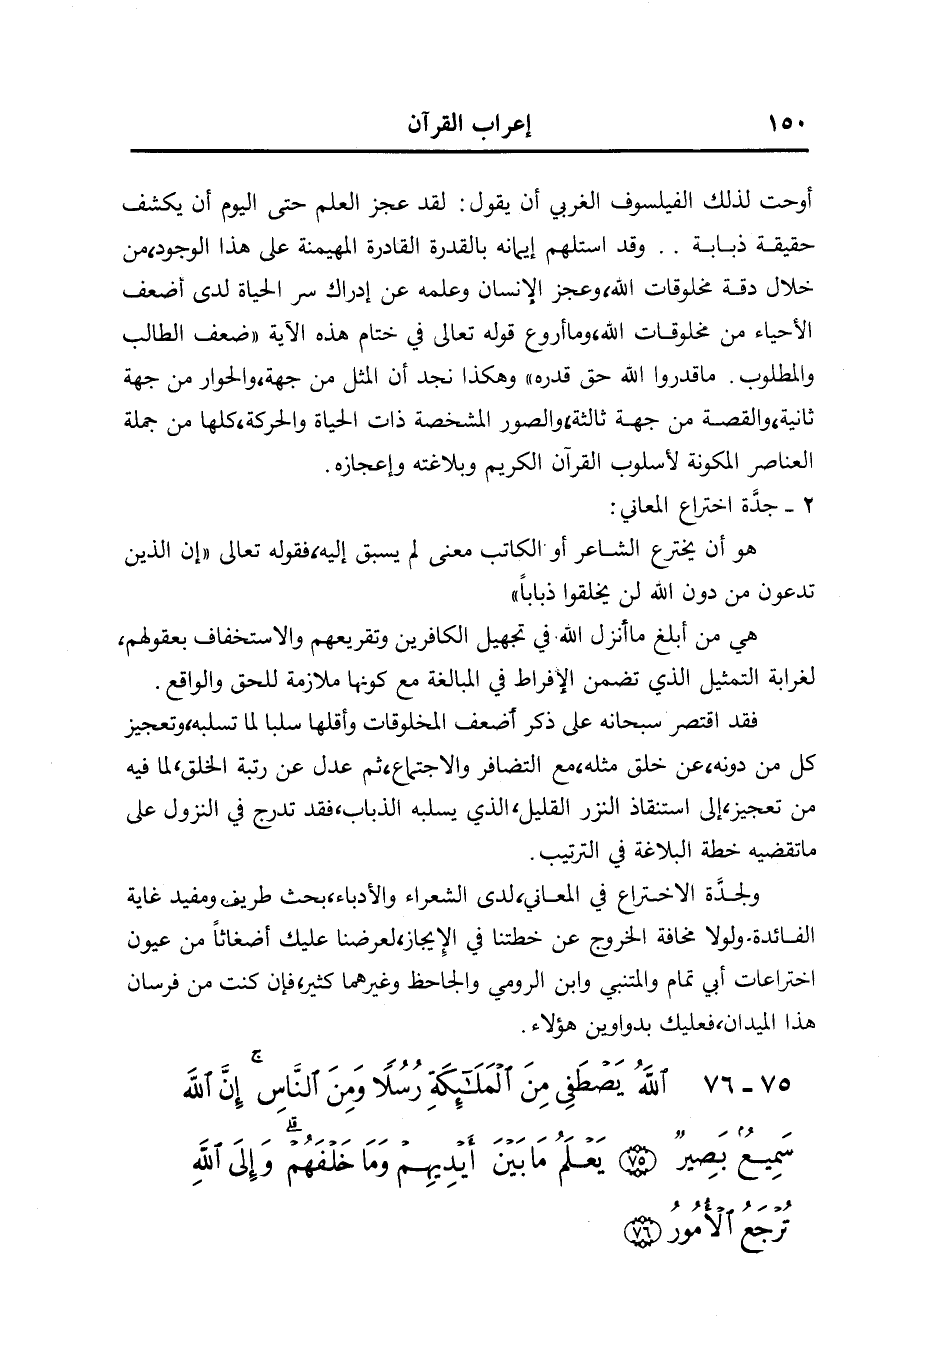 ١٥٠ إعراب القرآن
أوحت لذلك الفيلسوف الغربي أن يقول: لقد عجز العلم حتى اليوم أن يكشف
حقيقة ذبابة . . وقد استلهم إيمانه بالقدرة القادرة المهيمنة على هذا الوجود،من
خلال دقة مخلوقات الله،وعجز الإنسان وعلمه عن إدراك سر الحياة لدى أضعف
الأحياء من مخلوقات الله،وماأروع قوله تعالى في ختام هذه الآية «ضعف الطالب
والمطلوب. ماقدروا الله حق قدره» وهكذا نجد أن المثل من جهة،والحوار من جهة
ثانية،والقصة من جهة ثالثة،والصور المشخصة ذات الحياة والحركة،كلها من جملة
العناصر المكونة لأسلوب القرآن الكريم وبلاغته وإعجازه.
٢ - جدَّة اختراع المعاني:
هو أن يخترع الشاعر أو الكاتب معنى لم يسبق إليه،فقوله تعالى «إن الذين
تدعون من دون الله لن يخلقوا ذباباً»
هي من أبلغ ماأنزل الله في تجهيل الكافرين وتقريعهم والاستخفاف بعقولهم،
لغرابة التمثيل الذي تضمن الإفراط في المبالغة مع كونها ملازمة للحق والواقع.
فقد اقتصر سبحانه على ذكر أضعف المخلوقات وأقلها سلبا لما تسلبه،وتعجيز
كل من دونه،عن خلق مثله،مع التضافر والاجتماع،ثم عدل عن رتبة الخلق،لما فيه
من تعجيز،إلى استنقاذ النزر القليل،الذي يسلبه الذباب،فقد تدرج في النزول على
ماتقضيه خطة البلاغة في الترتيب.
ولجدَّة الاختراع في المعاني،لدى الشعراء والأدباء،بحث طريف ومفيد غاية
الفائدة.ولولا مخافة الخروج عن خطتنا في الإيجاز،لعرضنا عليك أضغاثاً من عيون
اختراعات أبي تمام والمتنبي وابن الرومي والجاحظ وغيرهما كثير،فإن كنت من فرسان
هذا الميدان،فعليك بدواوين هؤلاء.
٧٥ - ٧٦ ٱللَّهُ يَصْطَفِى مِنَ ٱلْمَلَـٰٓئِكَةِ رُسُلًا وَمِنَ ٱلنَّاسِ ۚ إِنَّ ٱللَّهَ
سَمِيعٌۢ بَصِيرٌ ﴿٧٥﴾ يَعْلَمُ مَا بَيْنَ أَيْدِيهِمْ وَمَا خَلْفَهُمْ ۗ وَإِلَى ٱللَّهِ
تُرْجَعُ ٱلْأُمُورُ ﴿٧٦﴾